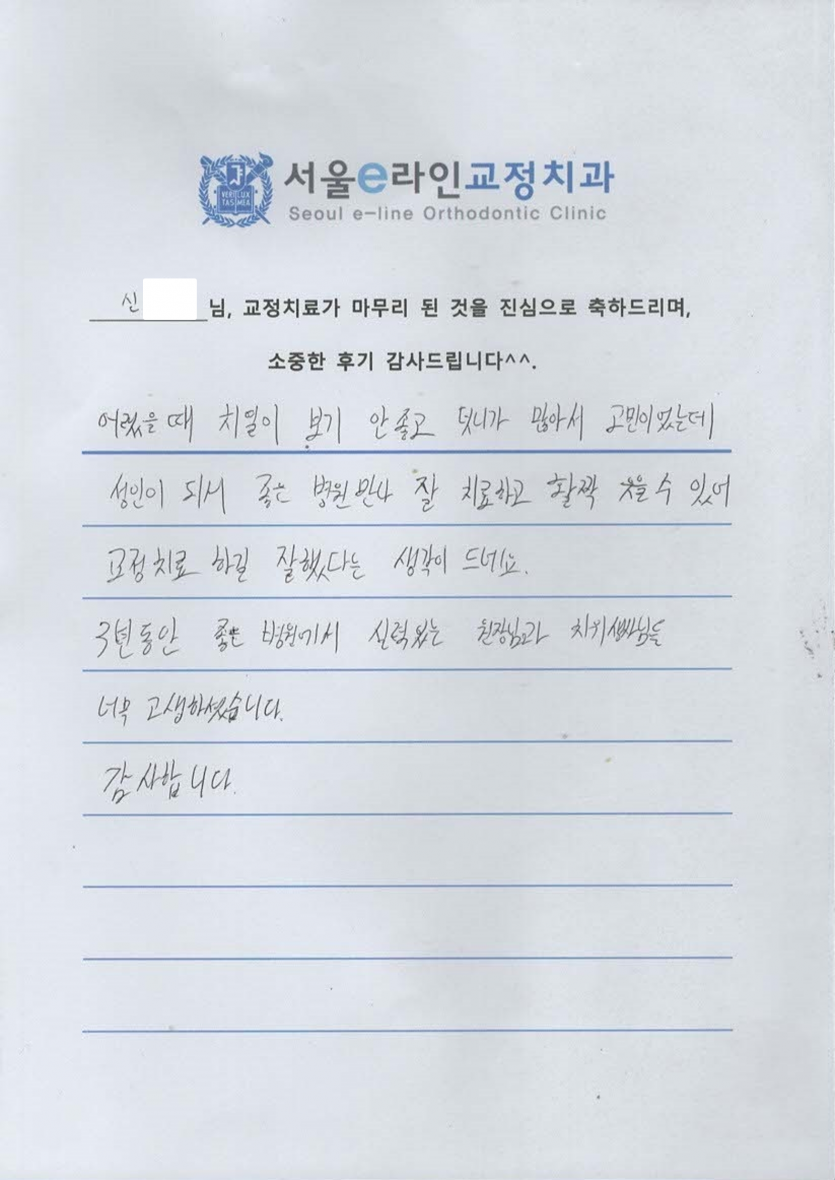 VERI LUX TAS MEA
서울e라인교정치과
Seoul e-line Orthodontic Clinic
신 님, 교정치료가 마무리 된 것을 진심으로 축하드리며,
소중한 후기 감사드립니다^^.
어렸을 때 치열이 보기 안좋고 덧니가 많아서 고민이었는데
성인이 되서 좋은 병원만나 잘 치료하고 활짝 웃을 수 있어
교정치료 하길 잘했다는 생각이 드네요.
3년동안 좋은 병원에서 실력있는 원장님과 치위생사님들
너무 고생하셨습니다.
감사합니다.